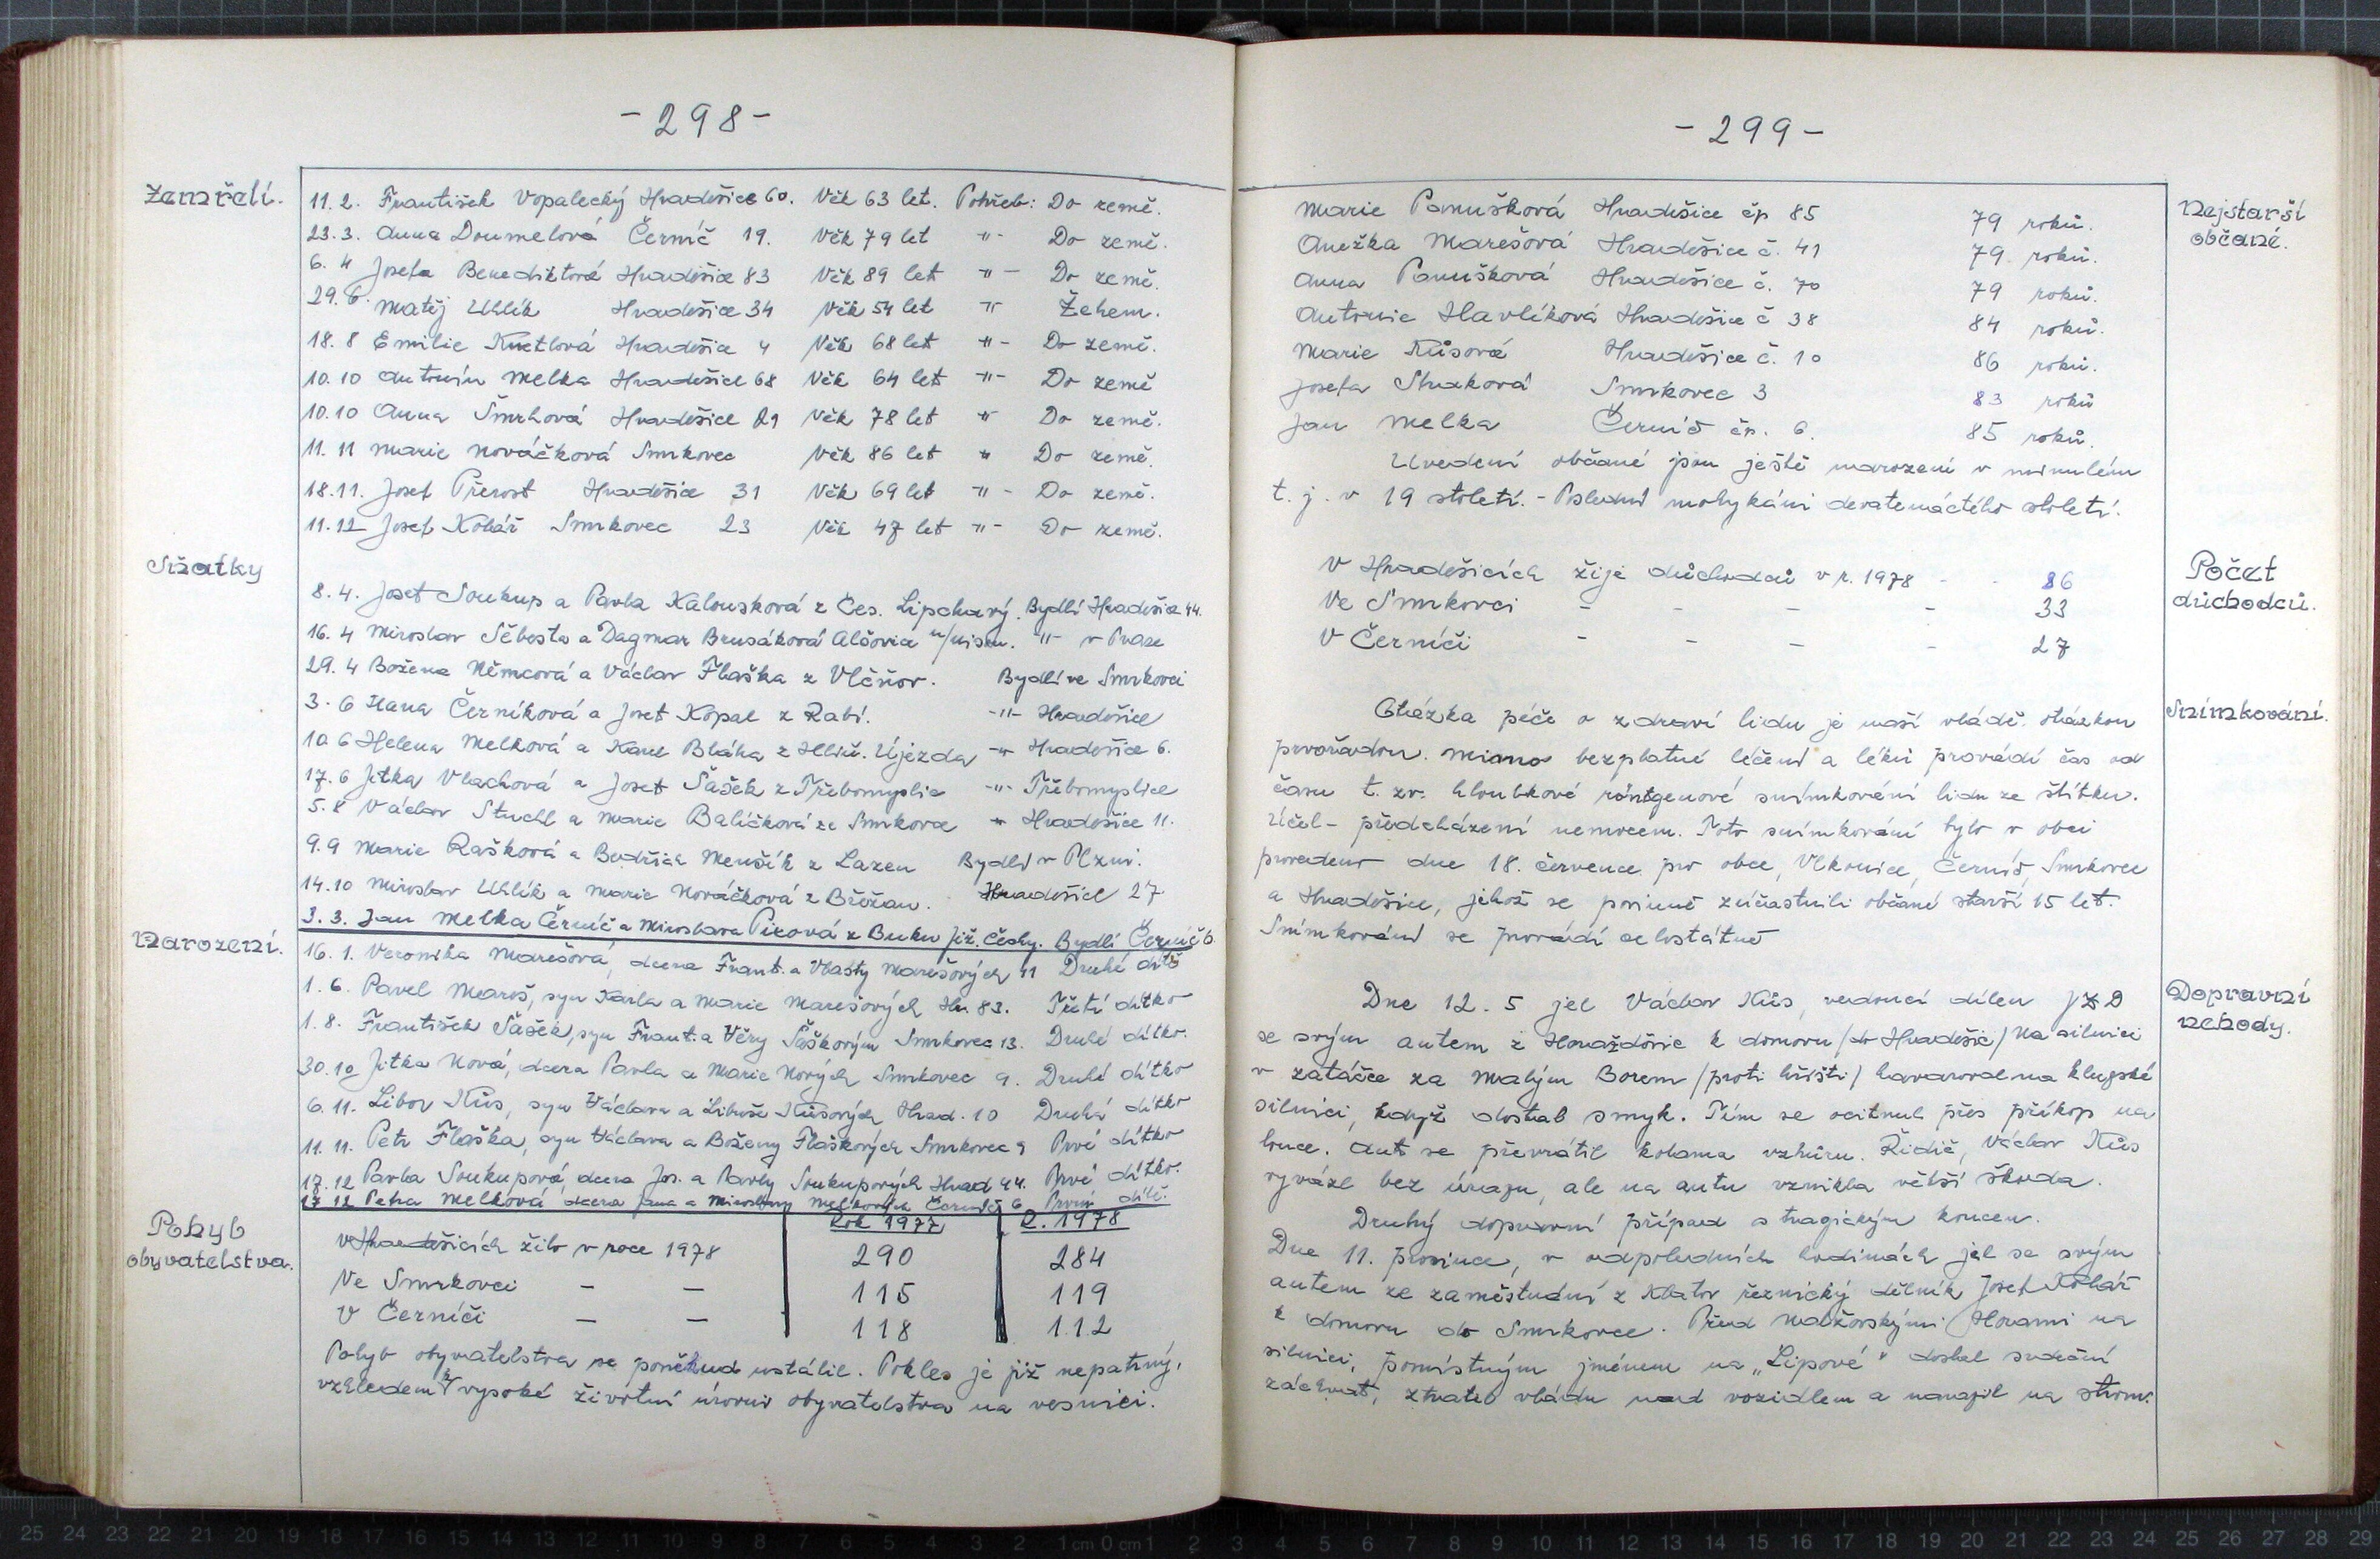 - 298 -
Zemřelí.
11.2. František Vopalecký Hradešice 60. Věk 63 let. Pohřeb: Do země.
23.3. Anna Doumelová Černíč 19. Věk 79 let -"- Do země.
6.4 Josefa Benediktová Hradešice 83 Věk 89 let -"- Do země.
29.6. Matěj Uhlík Hradešice 34 Věk 54 let -"- Žehem.
18.8 Emilie Hradešice 4 Věk 68 let -"- Do země.
10.10 Antonín Melka Hradešice 68 Věk 64 let -"- Do země
10.10 Anna Šmrhová Hradešice 21 Věk 78 let -"- Do země.
11.11 Marie Nováčková Smrkovec Věk 86 let " Do země.
18.11. Josef Přerost Hradešice 31 Věk 69 let -"- Do země.
11.12 Josef Kolář Smrkovec 23 Věk 47 let -"- Do země.
Sňatky
8.4. Josef Soukup a Pavla Kalousková z Čes. Bydlí Hradešice 44.
16.4 Miroslav Šebesta a Dagmar Brusáková Alšovice -"- v Praze
29.4 Božena Němcová a Václav Flaška z Vlčňov. Bydlí ve Smrkovci
3.6 Hana Černíková a Josef Kopal z Rabí. -"- Hradešice
10.6 Helena Melková a Karel Bláha z Újezda -"- Hradešice 6.
17.6 Jitka Vlachová a Josef Šašek z Třebomyslic -"- Třebomyslice
5.8 Václav Stuchl a Marie Balíčková ze Smrkovce -"- Hradešice 11.
9.9 Marie Rašková a Bedřich Menšík z Lazen Bydlí v Plzni.
14.10 Miroslav Uhlík a Marie Nováčková z Břežan. Hradešice 27.
3.3. Jan Melka Černíč a Miroslava Pixová z Buku Již. Čechy. Bydlí Černíč 6
Narození.
16.1. Veronika Marešová, dcera Frant. a Vlasty Marešových 11 Druhé dítě
1.6. Pavel Mareš, syn Karla a Marie Marešových Hr. 83. Třetí dítko
1.8. František Šašek, syn Frant. a Věry Šaškovým Smrkovec 13. Druhé dítko.
30.10 Jitka Nová, dcera Pavla a Marie Nových Smrkovec 9. Druhé dítko
6.11. Libor Kůs, syn Václava a Libuše Kůsových Hrad. 10 Druhé dítko
11.11. Petr Flaška, syn Václava a Boženy Flaškových Smrkovec 9 Prvé dítko
17.12 Pavla Soukupová, dcera Jos. a Pavly Soukupových Hrad 44. Prvé dítko.
17 12 Petra Melková dcera Jana a Miroslavy Melkových Černíč 6 První dítě.
Pohyb obyvatelstva.
Rok 1977 R. 1978
V Hradešicích žilo v roce 1978 290 284
Ve Smrkovci - - 115 119
V Černíči - - 118 112
Pohyb obyvatelstva se poněkud ustálil. Pokles je již nepatrný,
vzhledem k vysoké životní úrovni obyvatelstva na vesnici.
- 299 -
Nejstarší občané.
Marie Panušková Hradešice čp 85 79 roků.
Anežka Marešová Hradešice č. 41 79 roků.
Anna Panušková Hradešice č. 70 79 roků.
Antonie Havlíková Hradešice č 38 84 roků.
Marie Kůsová Hradešice č. 10 86 roků.
Josefa Straková Smrkovec 3 83 roků
Jan Melka Černíč čp. 6. 85 roků.
Uvedení občané jsou ještě narozeni v minulém
t.j. v 19 století. - Poslední mohykáni devatenáctého století.
Počet důchodců.
V Hradešicích žije důchodců v r. 1978 - - 86
Ve Smrkovci - - - - 33
V Černíči - - - - 27
Snímkování.
Otázka péče o zdraví lidu je naší vládě otázkou
prvořadou. Mimo bezplatné léčení a léků provádí čas od
času t. zv. hloubkové röntgenové snímkování lidu ze štítku.
Účel - předcházení nemocem. Toto snímkování bylo v obci
provedeno dne 18. července pro obce, Vlkonice, Černíč, Smrkovec
a Hradešice, jehož se povinně zúčastnili občané starší 15 let.
Snímkování se provádí celostátně
Dopravní nehody.
Dne 12.5 jel Václav Kůs, vedoucí dílen JZD
se svým autem z Horažďovic k domovu /do Hradešic/ Na silnici
v zatáčce za Malým Borem /proti hřišti/ havaroval na klugské
silnici, když dostal smyk. Tím se ocitnul přes příkop na
louce. Aut se převrátil kolama vzhůru. Řidič, Václav Kůs
vyvázl bez úrazu, ale na autu vznikla větší škoda.
Druhý dopravní případ s tragickým koncem.
Dne 11. prosince, v odpoledních hodinách jel se svým
autem ze zaměstnání z Klatov řeznický dělník Josef Kolář
k domovu do Smrkovce. Před Nalžovskými Horami na
silnici, pomístným jménem na „Lipové" dostal srdeční
záchvat, ztratil vládu nad vozidlem a narazil na strom.